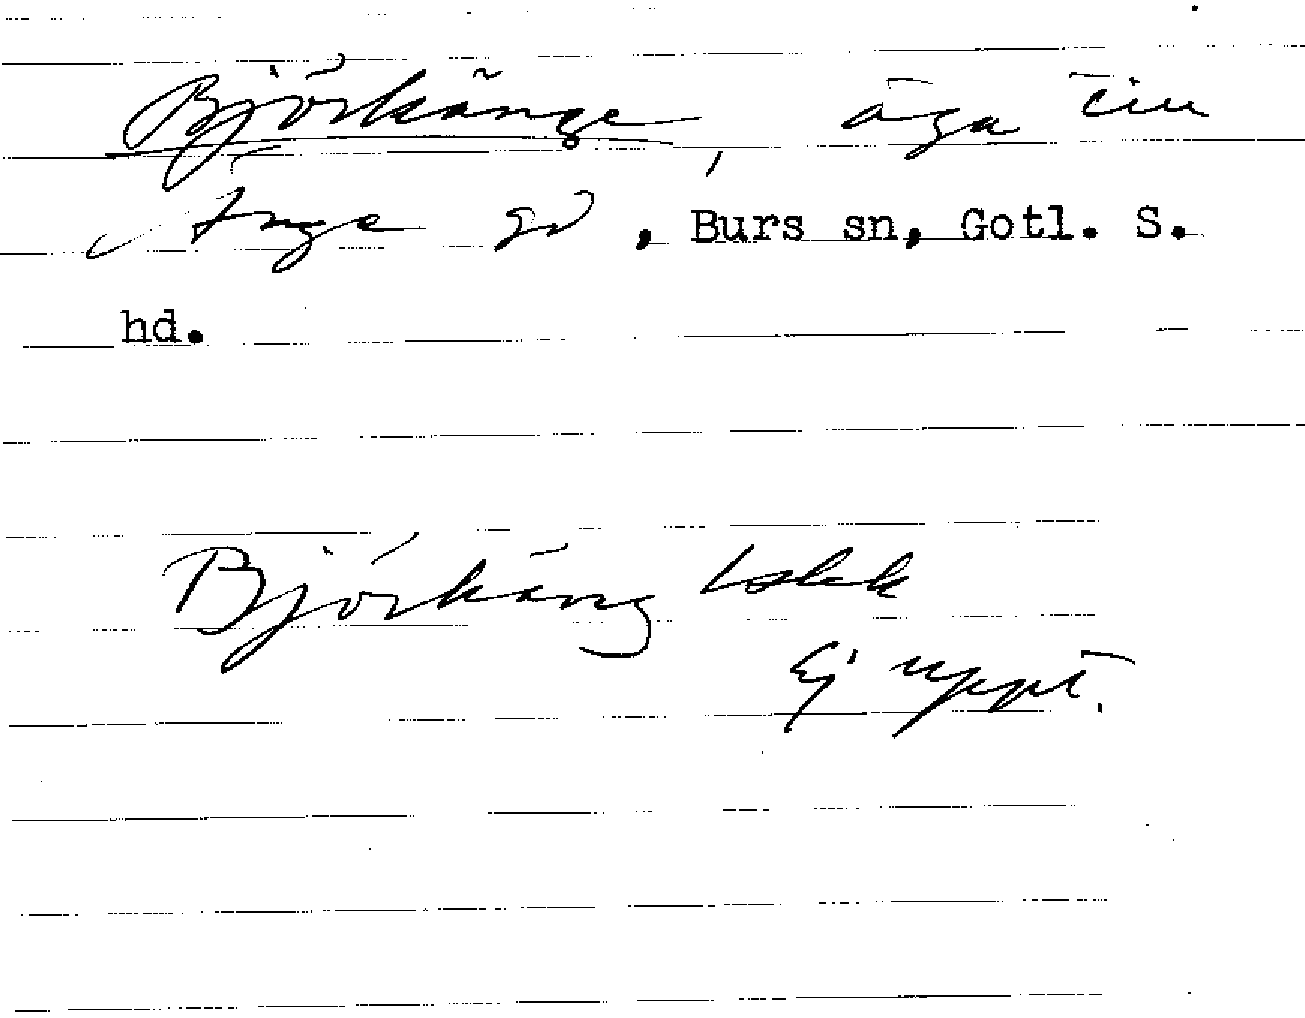 Björkänge, äga till
Änge gd, Burs sn, Gotl. S.
hd.
Björkäng Lskk
Ej uppt.